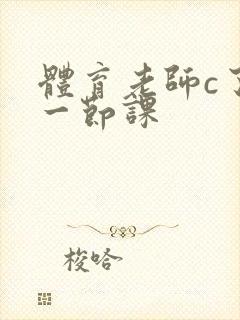 體育老師c了
一節課
梭哈